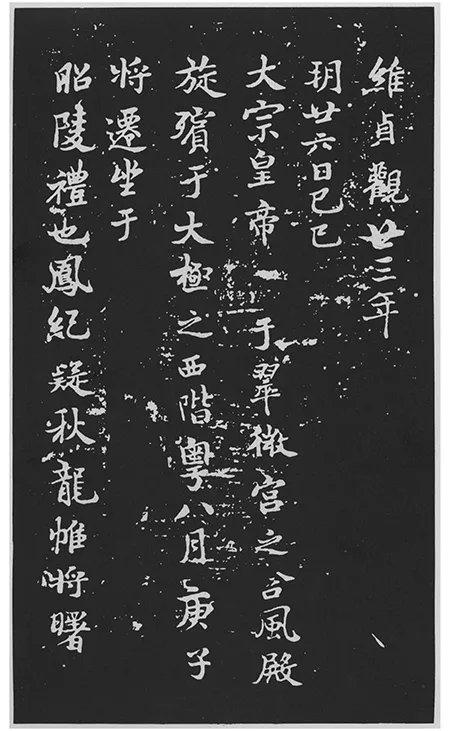 維貞觀廿三年
玥廿六日己巳
大宗皇帝一于翠微宮之含風殿
旋殯于大極之西階粵八月庚子
將遷坐于
昭陵禮也鳳紀疑秋龍帷將曙